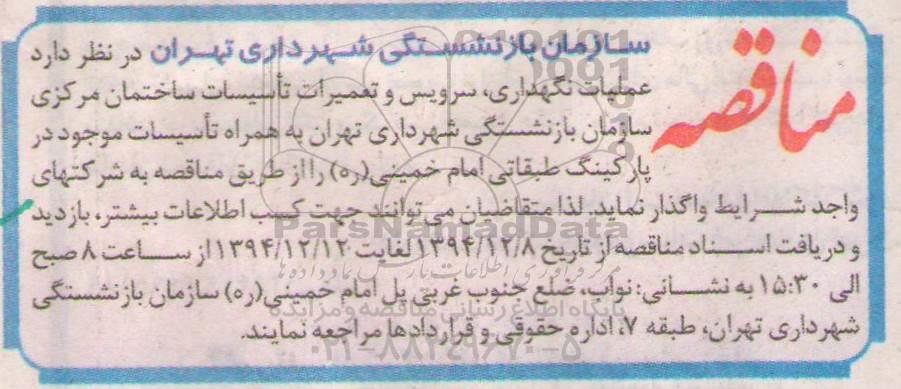 مناقصه
سازمان بازنشستگی شهرداری تهران در نظر دارد
عملیات نگهداری، سرویس و تعمیرات تأسیسات ساختمان مرکزی
سازمان بازنشستگی شهرداری تهران به همراه تأسیسات موجود در
پارکینگ طبقاتی امام خمینی(ره) را از طریق مناقصه به شرکتهای
واجد شرایط واگذار نماید. لذا متقاضیان می‌توانند جهت کسب اطلاعات بیشتر، بازدید
و دریافت اسناد مناقصه از تاریخ ۱۳۹۴/۱۲/۸ لغایت ۱۳۹۴/۱۲/۱۲ از ساعت ۸ صبح
الی ۱۵:۳۰ به نشانی: نواب، ضلع جنوب غربی پل امام خمینی(ره) سازمان بازنشستگی
شهرداری تهران، طبقه ۷، اداره حقوقی و قراردادها مراجعه نمایند.
ParsNamadData
پایگاه اطلاع رسانی مناقصه و مزایده
۰۲۱-۸۸۳۴۹۶۷۰-۵